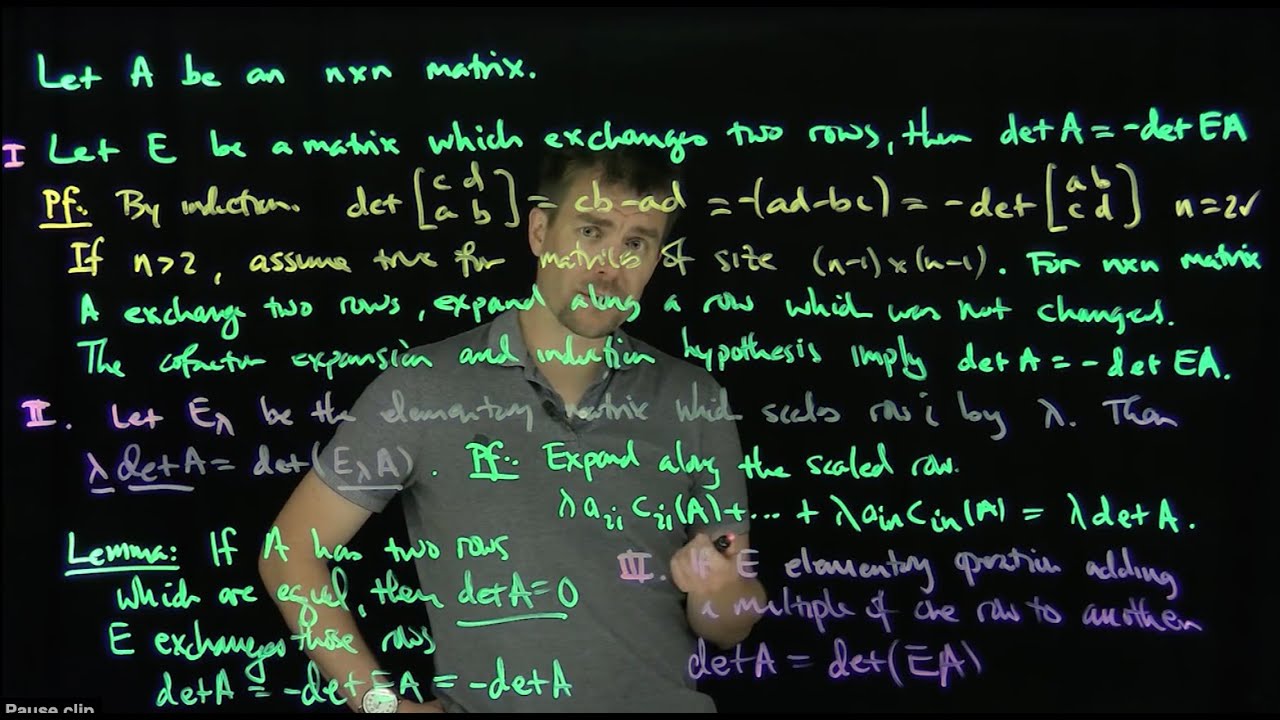 Let A be an n×n matrix.
I Let E be a matrix which exchanges two rows, then det A = -det EA
Pf: By induction. det [c d; a b] = cb-ad = -(ad-bc) = -det [a b; c d] n=2✓
If n>2, assume true for matrices of size (n-1)×(n-1). For n×n matrix
A exchange two rows, expand along a row which was not changes.
The cofactor expansion and induction hypothesis imply det A = -det EA.
II. Let E_λ be the elementary matrix which scales row i by λ. Then
λ det A = det(E_λ A). Pf: Expand along the scaled row.
λ a_{i1} C_{i1}(A) + ... + λ a_{in} C_{in}(A) = λ det A.
Lemma: If A has two rows
which are equal, then det A = 0
E exchanges those rows
det A = -det EA = -det A
III. If E elementary operation adding
a multiple of one row to another
det A = det(EA)
Pause clip